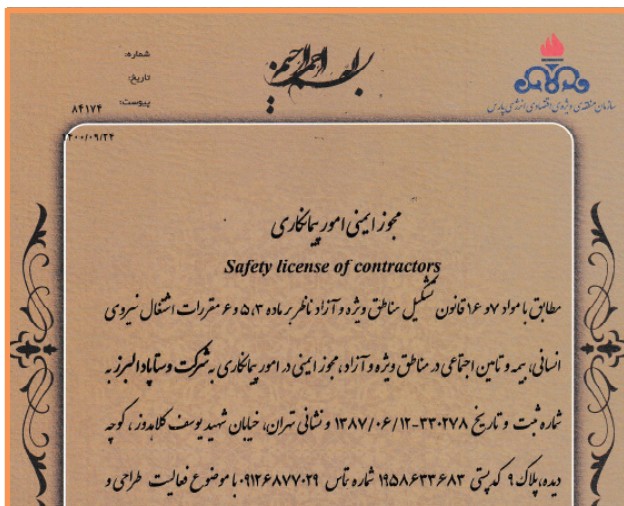 بسم الله الرحمن الرحیم
شماره:
تاریخ:
پیوست:
۸۴۱۷۴
۱۴۰۰/۰۹/۲۴
سازمان منطقه‌ی ویژه‌ی اقتصادی انرژی پارس
مجوز ایمنی امور پیمانکاری
Safety license of contractors
مطابق با مواد ۷ و ۱۶ قانون تشکیل مناطق ویژه و آزاد ناظر بر ماده ۵،۳ و ۶ مقررات اشتغال نیروی
انسانی، بیمه و تامین اجتماعی در مناطق ویژه و آزاد، مجوز ایمنی در امور پیمانکاری به شرکت وستاپاد البرز به
شماره ثبت و تاریخ ۳۳۰۲۷۸-۱۳۸۷/۰۶/۱۲ و نشانی تهران، خیابان شهید یوسف کلاهدوز، کوچه
دیده، پلاک ۹ کدپستی ۱۹۵۸۶۳۳۶۸۳ شماره تماس ۰۹۱۲۶۸۷۷۰۲۹ با موضوع فعالیت طراحی و